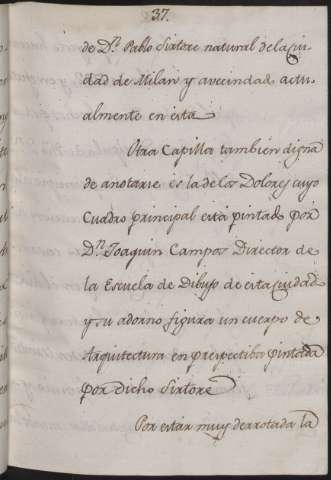 37.
de D.ⁿ Pablo Sistore natural de la Ciu-
dad de Milan y avecindad. actu-
almente en esta.
Otra Capilla tambien digna
de anotarse es la de los Dolores cuyo
Cuadro principal está pintado por
D.ⁿ Joaquin Campos Director de
la Escuela de Dibujo de esta Ciudad
y su adorno figura un cuerpo de
Arquitectura en prespectiba pintada
por dicho Sistore
Por estar muy derrotada la